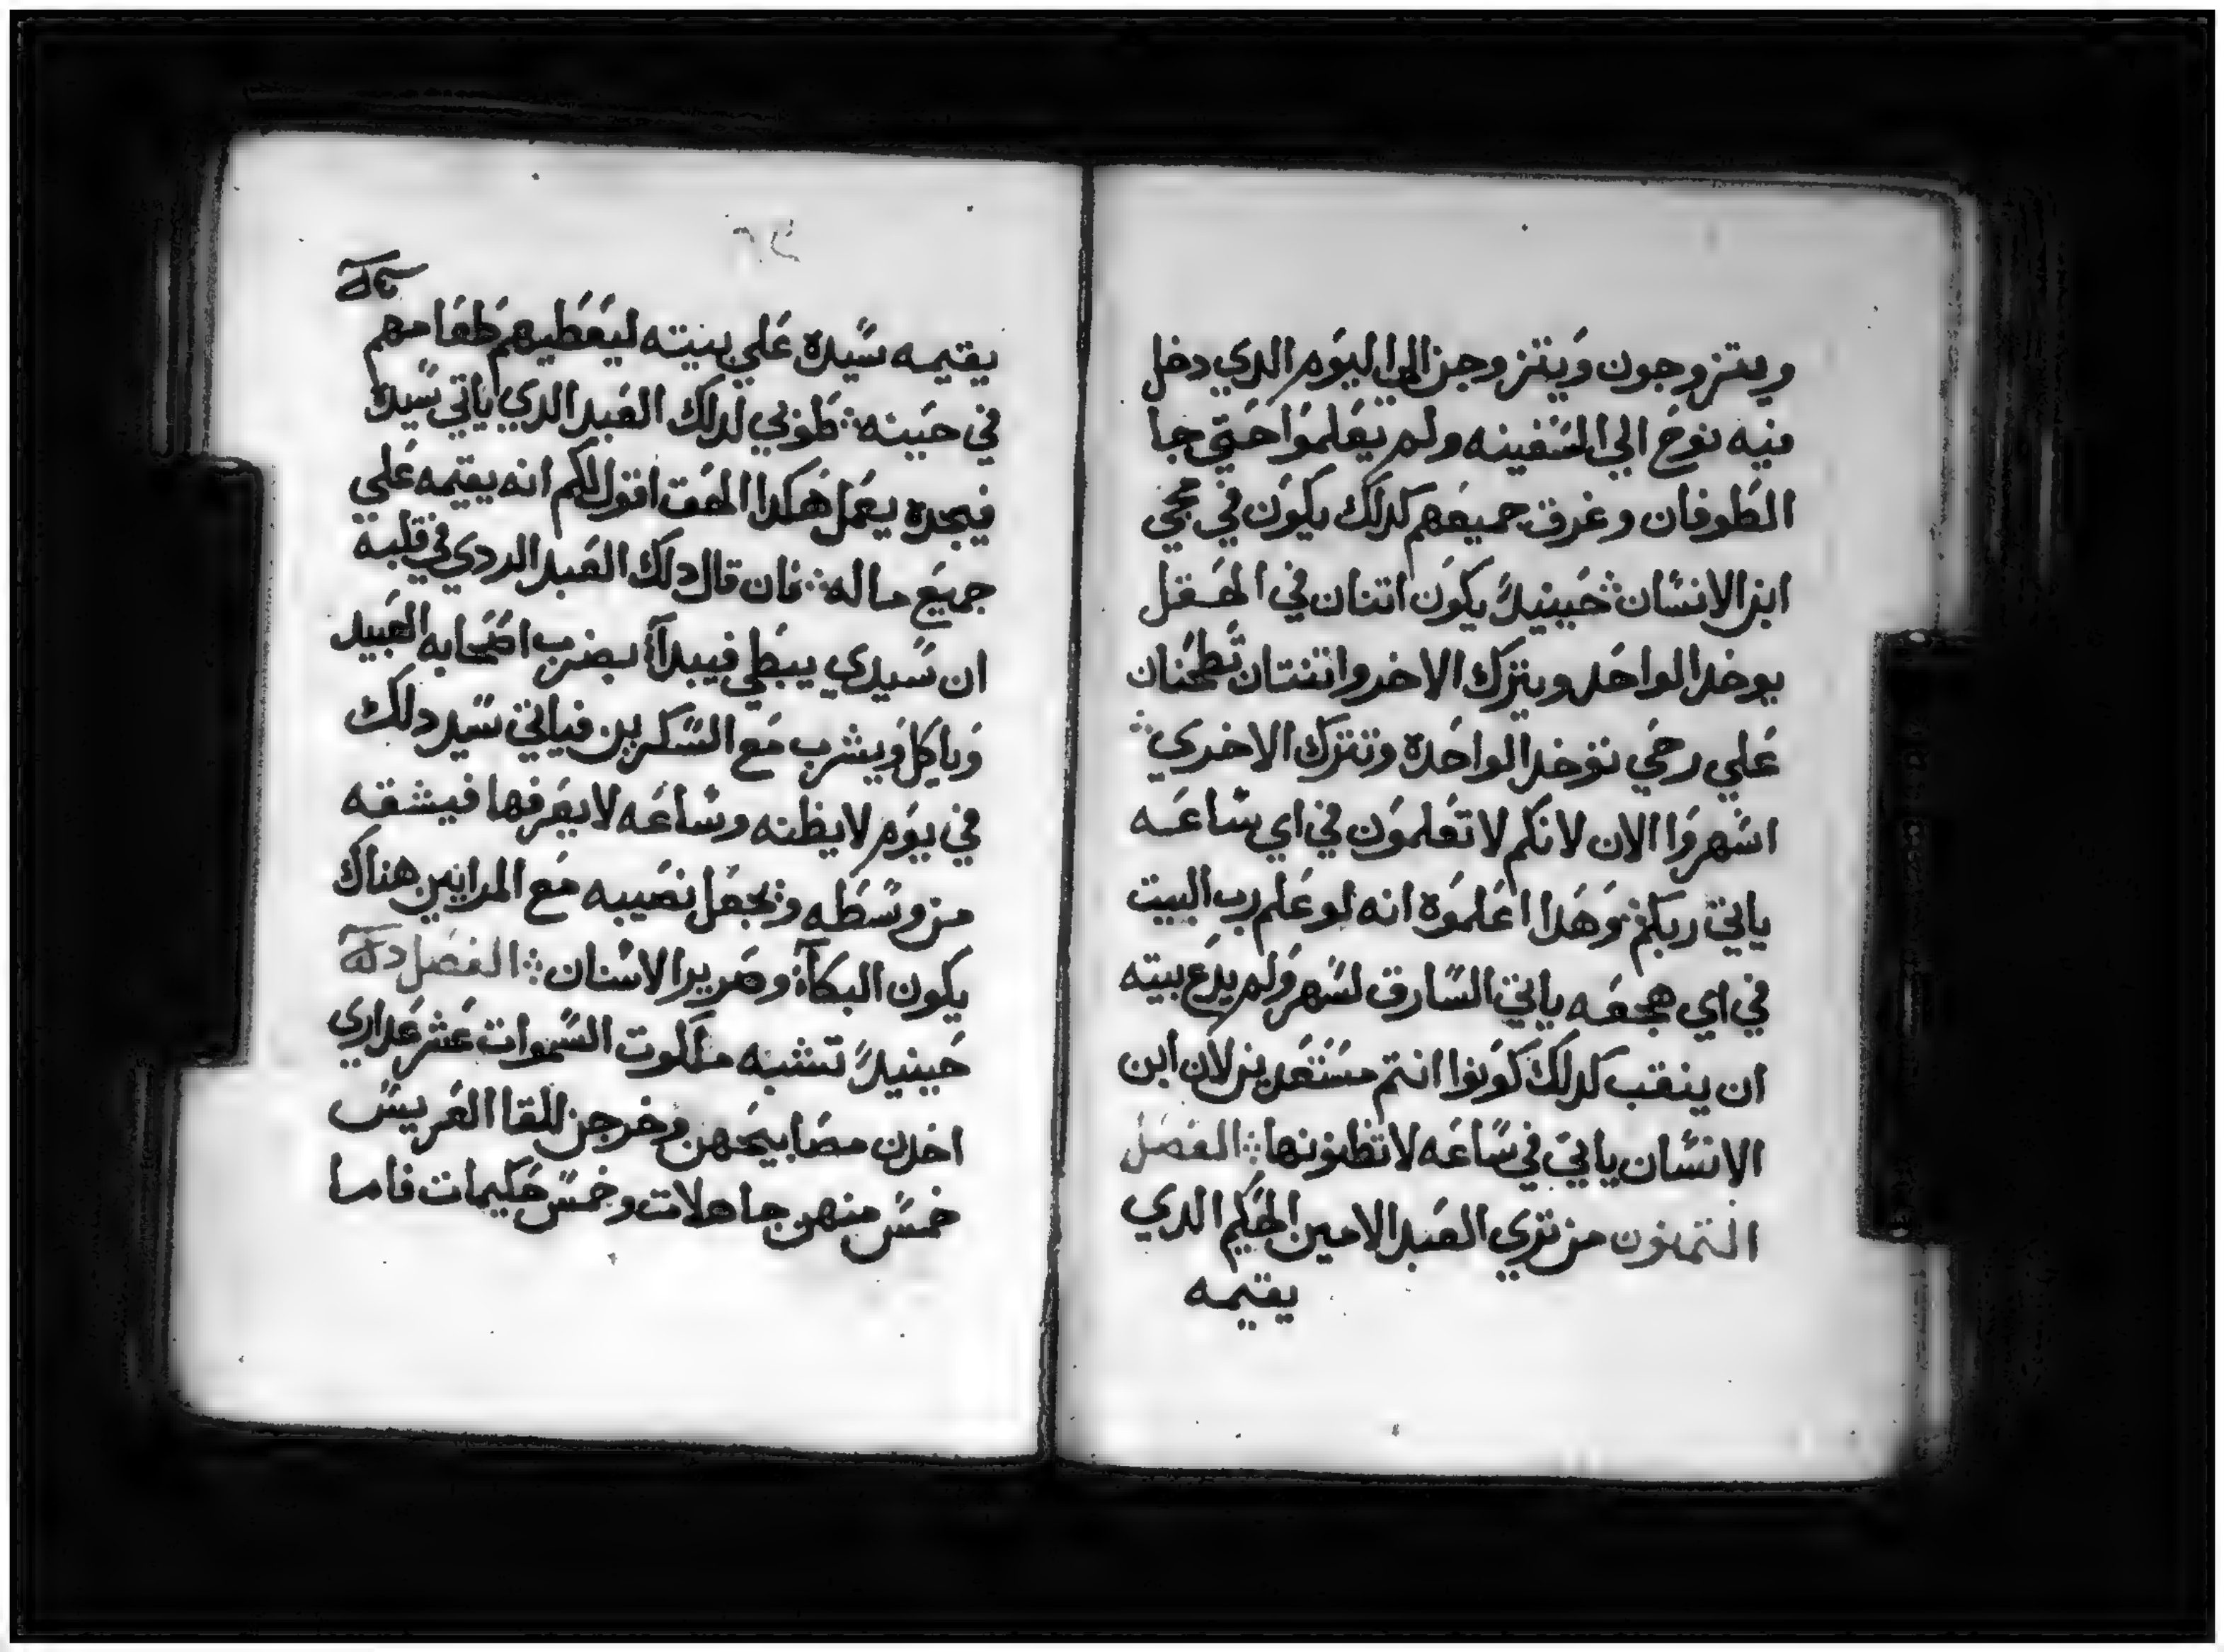 ويتزوجون ويتزوجن الي اليوم الدي دخل
فيه نوح الي السفينه ولم يعلموا حتي جا
الطوفان وغرق جميعهم كدلك يكون في مجي
ابن الانسان حينيدٍ يكون اتنان في الحقل
يوخد الواحد ويترك الاخر واتنتان تطحنان
علي رحي توخد الواحده وتترك الاخري
اسهروا الان لانكم لا تعلمون في اي ساعه
ياتي ربكم وهدا اعلموه انه لو علم رب البيت
في اي هجعه ياتي السارق لسهر ولم يدع بيته
ان ينقب كدلك كونوا انتم مستعدين لان ابن
الانسان ياتي في ساعه لا تظنونها الفصل
من تري العبد الامين الحكيم الدي
يقيمه
يقيمه سيده علي بنيته ليعطيهم طعامهم
في حينه طوبي لدلك العبد الدي ياتي سيده
فيجده يعمل هكدا الحق اقول لكم انه يقيمه علي
جميع ماله فان قال دلك العبد الردي في قلبه
ان سيدي يبطي فيبدا يضرب اصحابه العبيد
وياكل ويشرب مع السكرين فياتي سيد دلك
في يوم لا يظنه وساعه لا يعرفها فيشقه
من وسطه ويجعل نصيبه مع المرايين هناك
يكون البكآ وصرير الاسنان الفصل
حينيدٍ تشبه ملكوت السموات عشر عداري
اخدن مصابيحهن وخرجن للقا العريس
خمس منهن جاهلات وخمس حكيمات فاما